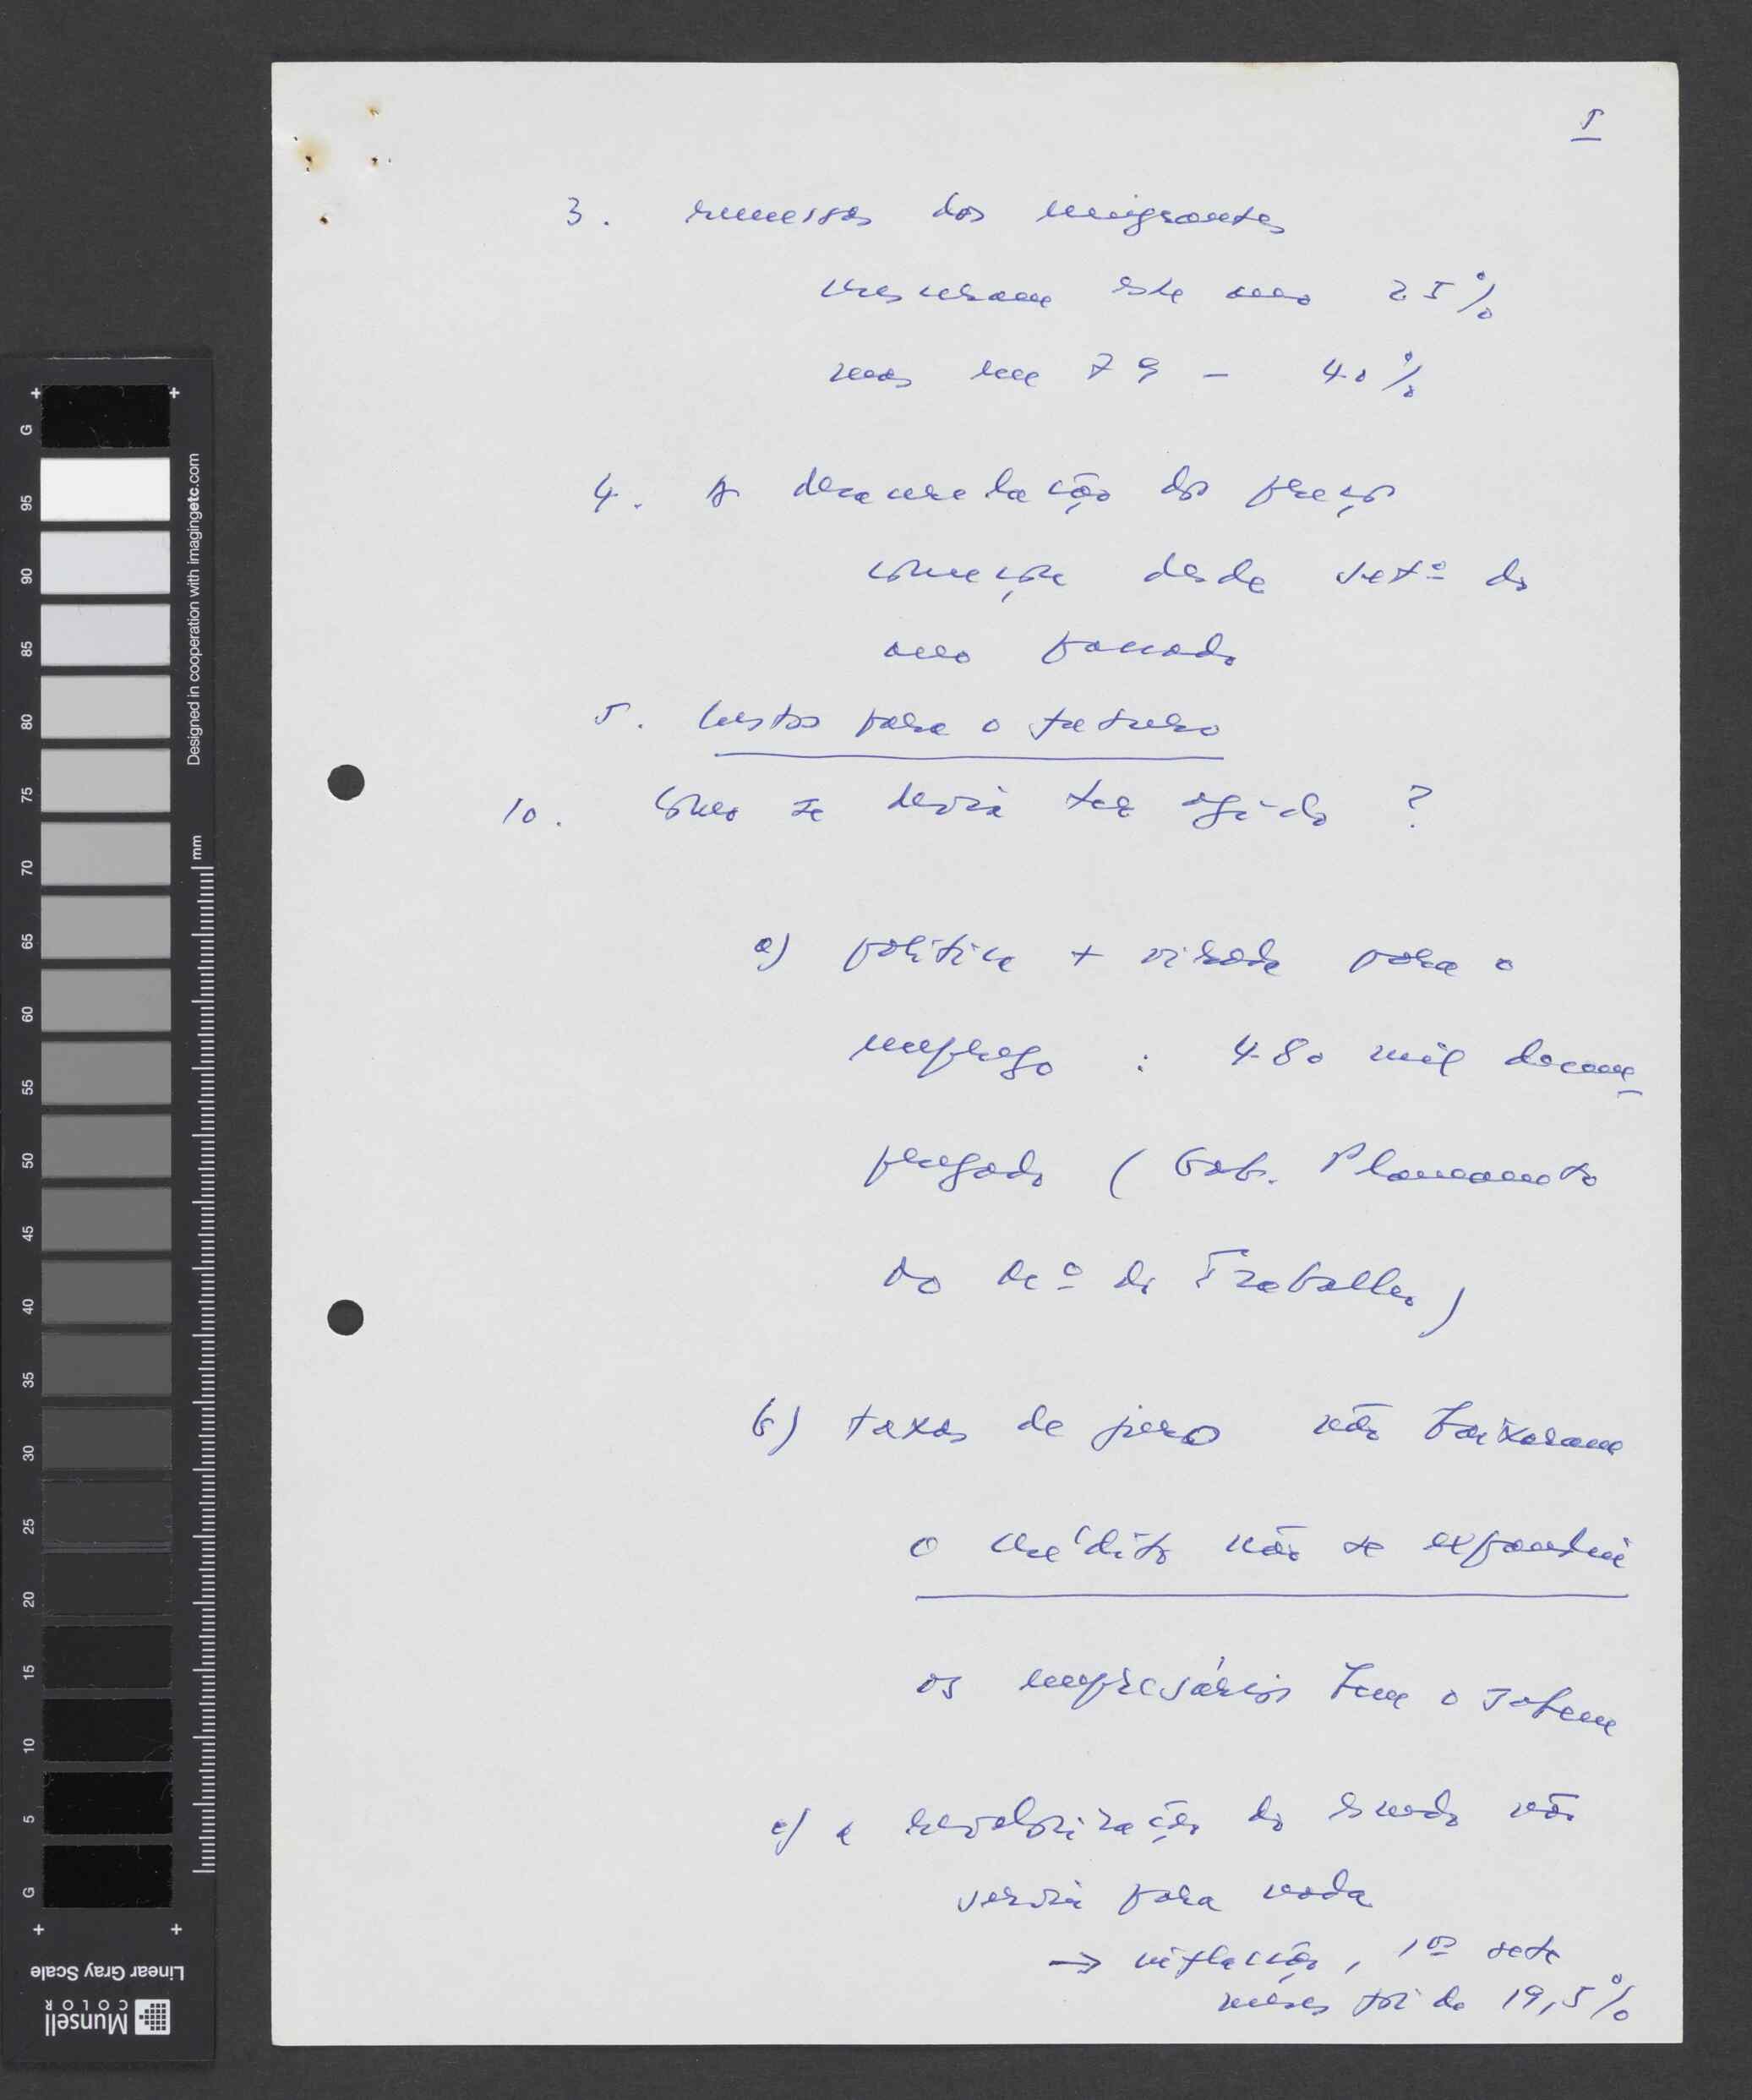 5
3. remessas dos emigrantes
cresceram este ano 25%
mas em 79 – 40%
4. A desaceleração dos preços
começou desde setº do
ano passado
5. Custos para o futuro
10. Como se devia ter agido ?
a) política + virada para o
emprego : 480 mil desem
pregados (Gab. Planeamento
do Mº do Trabalho)
b) taxas de juro não baixaram
o crédito não se expandiu
os empresários bem o sabem
c) a revalorização do escudo não
serviu para nada
→ inflação, 1os sete
meses foi de 19,5%
G
95
90
85
80
75
70
65
60
55
50
45
40
35
30
25
20
15
10
5
G
mm
Designed in cooperation with imagingetc.com
Linear Gray Scale
Munsell
COLOR